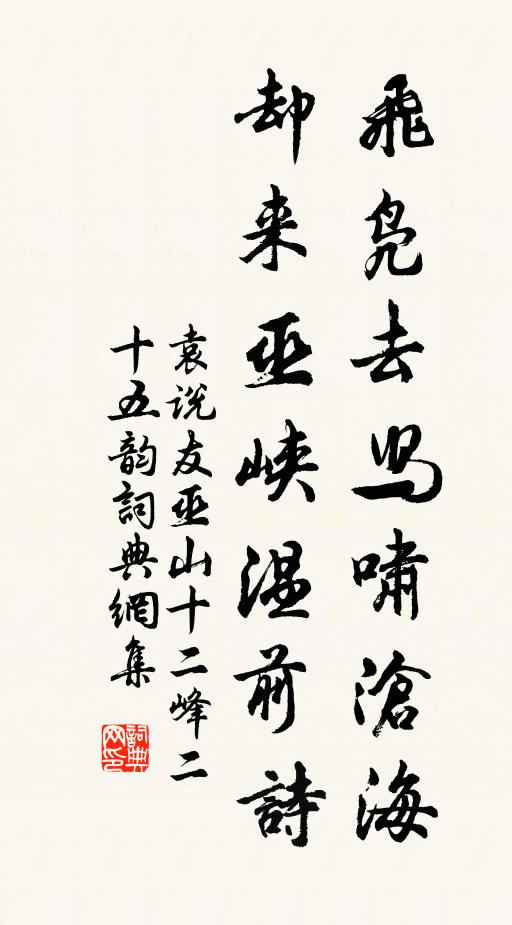 飛凫去舄嘯滄海
却来巫峽温前詩
袁說友巫山十二峰二
十五韵詞典網集
詞典网印